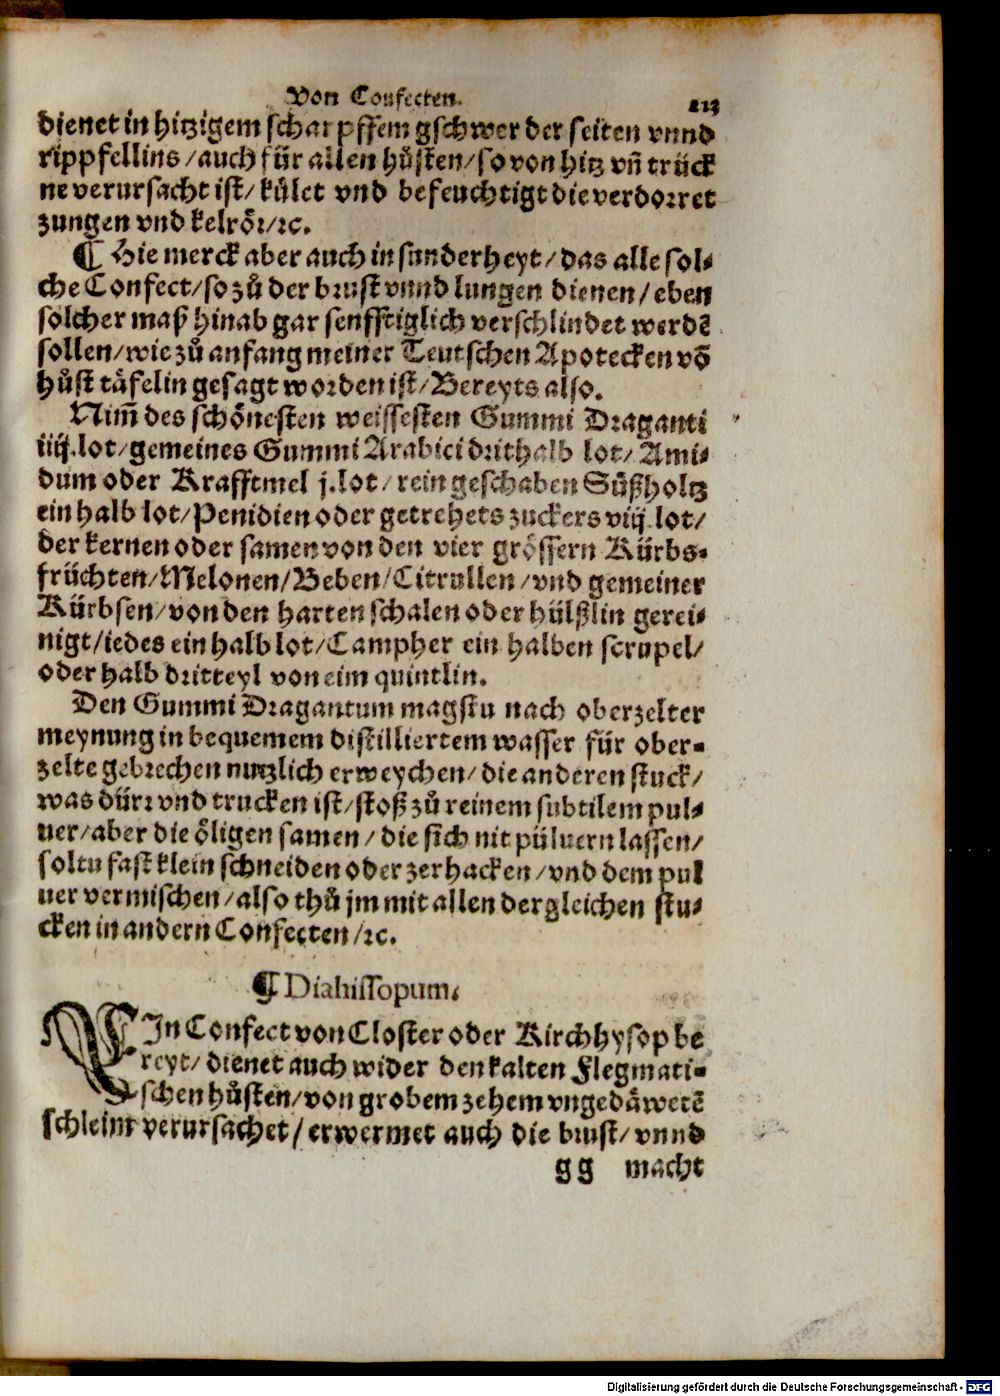 Von Confecten. 113
dienet in hitzigem scharpffem gschwer der seiten vnnd
rippfellins/auch für allen hůsten/so von hitz vn̄ trück
ne verursacht ist/kület vnd befeuchtigt die verdorret
zungen vnd kelrör/ꝛc.
¶ Hie merck aber auch in sunderheyt/das alle sol-
che Confect/so zů der brust vnnd lungen dienen/eben
solcher maß hinab gar senfftiglich verschlindet werdē
sollen/wie zů anfang meiner Teutschen Apotecken võ
hůst täfelin gesagt worden ist/Bereyts also.
Nim̄ des schönesten weissesten Gummi Draganti
iiij.lot/gemeines Gummi Arabici drithalb lot/Ami-
dum oder Krafftmel j.lot/rein geschaben Süßholtz
ein halb lot/Penidien oder getrehets zuckers viij.lot/
der kernen oder samen von den vier grössern Kürbs-
früchten/Melonen/Beben/Citrullen/vnd gemeiner
Kürbsen/von den harten schalen oder hülßlin gerei-
nigt/iedes ein halb lot/Campher ein halben scrupel/
oder halb dritteyl von eim quintlin.
Den Gummi Dragantum magstu nach oberzelter
meynung in bequemem distilliertem wasser für ober-
zelte gebrechen nutzlich erweychen/die anderen stuck/
was dürr vnd trucken ist/stoß zů reinem subtilem pul-
uer/aber die öligen samen/die sich nit püluern lassen/
soltu fast klein schneiden oder zerhacken/vnd dem pul
uer vermischen/also thů jm mit allen dergleichen stu-
cken in andern Confecten/ꝛc.
¶ Diahissopum.
EJn Confect von Closter oder Kirchhysop be
reyt/dienet auch wider den kalten Flegmati-
schen hůsten/von grobem zehem vngedäwetē
schleim verursachet/erwermet auch die brust/vnnd
gg macht
Digitalisierung gefördert durch die Deutsche Forschungsgemeinschaft - DFG